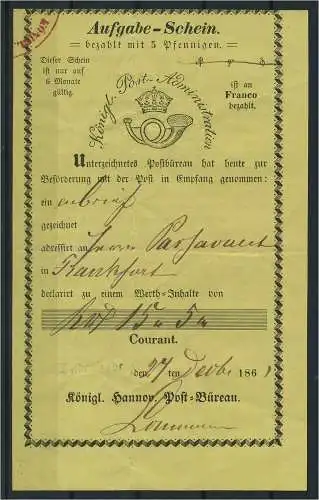 Aufgabe-Schein.
bezahlt mit 5 Pfennigen.
Dieser Schein
ist nur auf
6 Monate
gültig.
Königl. Post-Administration
ist an
Franco
bezahlt.
Unterzeichnetes Postbüreau hat heute zur
Beförderung mit der Post in Empfang genommen:
ein
gezeichnet
adressirt an Herrn Passavant
in Frankfurt
declarirt zu einem Werth-Inhalte von
15
Courant.
den 27 ten Decbr 1861
Königl. Hannov. Post-Büreau.